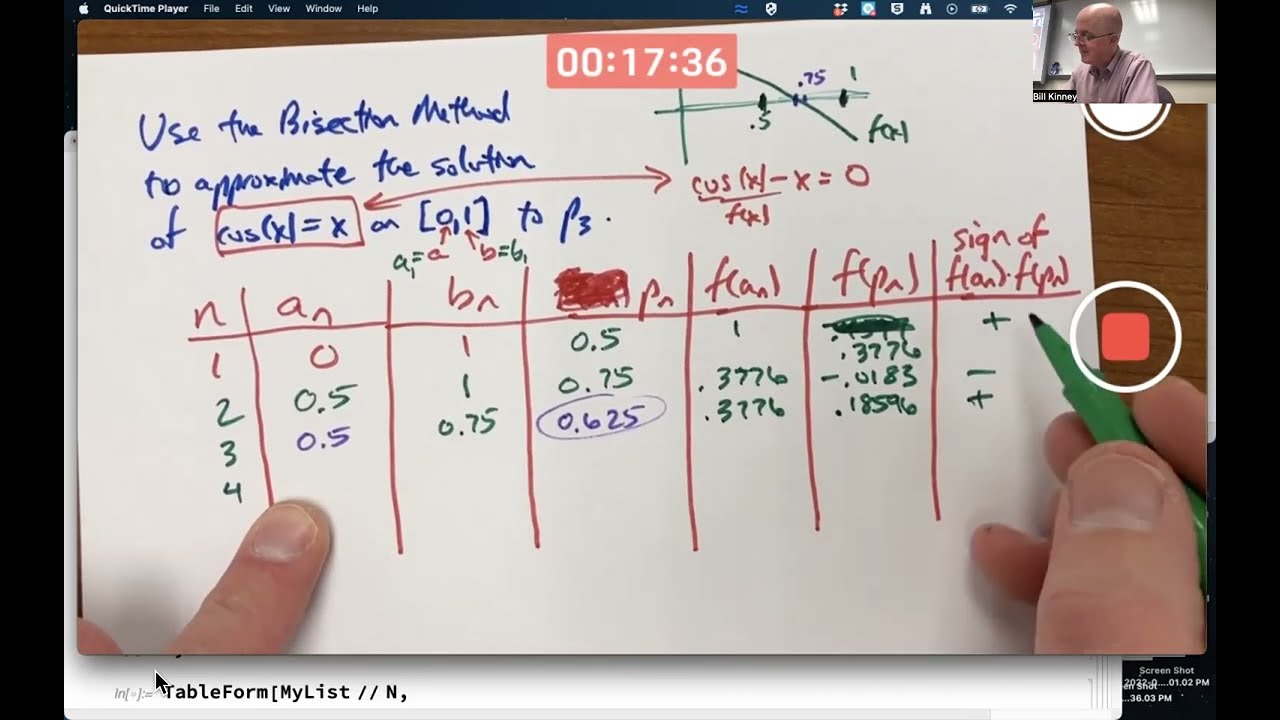 QuickTime Player File Edit View Window Help
00:17:36
Bill Kinney
Use the Bisection Method
to approximate the solution
of cos(x)=x on [0,1] to p₃.
a₁=a b=b₁
.75 1
.5 f(x)
cos(x)-x=0
f(x)
sign of
n aₙ bₙ pₙ f(aₙ) f(pₙ) f(aₙ)·f(pₙ)
1 0 1 0.5 1 .3776 +
2 0.5 1 0.75 .3776 -.0183 -
3 0.5 0.75 0.625 .3776 .18596 +
4
In[ ]:= TableForm[MyList // N,
Screen Shot
2022-0....01.02 PM
een Shot
....36.03 PM